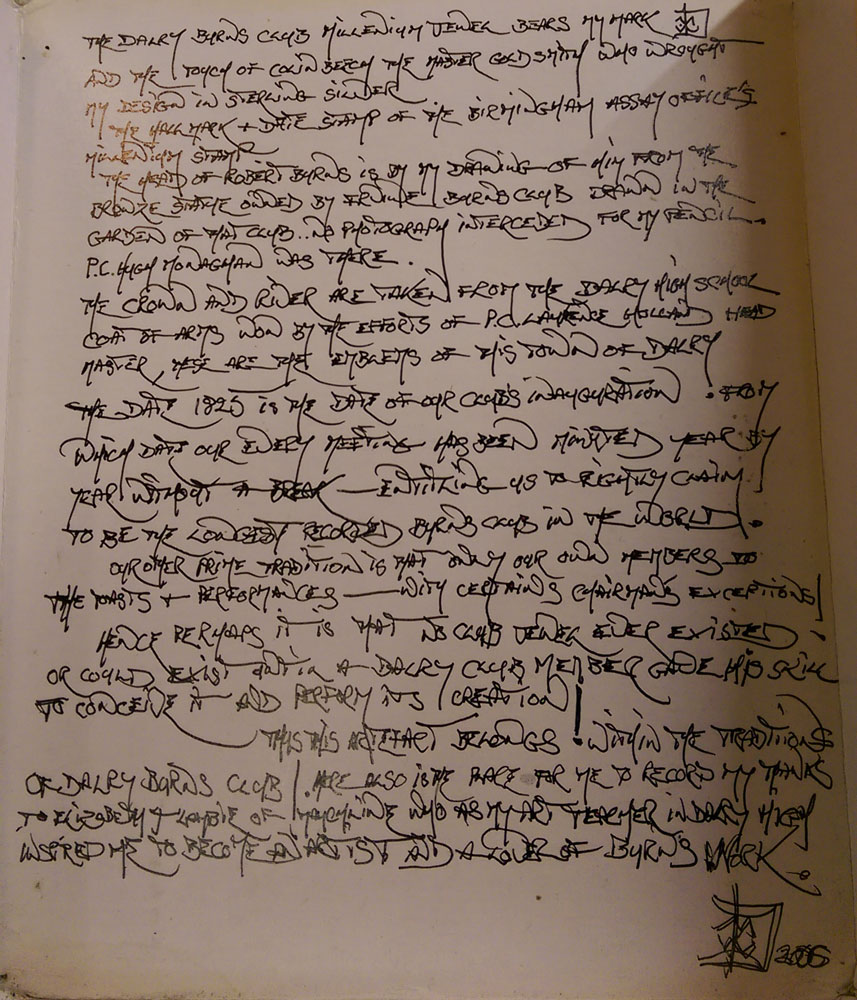 THE DALRY BURNS CLUB MILLENIUM JEWEL BEARS MY MARK
AND THE TOUCH OF COLIN THE MASTER GOLDSMITH WHO WROUGHT
MY DESIGN IN STERLING SILVER
THE HALLMARK + DATE STAMP OF THE BIRMINGHAM ASSAY OFFICE'S
MILLENIUM STAMP
THE HEAD OF ROBERT BURNS IS BY MY DRAWING OF HIM FROM THE
BRONZE STATUE OWNED BY IRVINE BURNS CLUB DRAWN IN THE
GARDEN OF THAT CLUB.. NO PHOTOGRAPHY INTERCEDED FOR MY PENCIL.
P.C. HUGH MONAGHAN WAS THERE.
THE CROWN AND RIVER ARE TAKEN FROM THE DALRY HIGH SCHOOL
COAT OF ARMS WON BY THE EFFORTS OF P.C. LAURENCE HOLLAND HEAD
MASTER, THESE ARE THE EMBLEMS OF THIS TOWN OF DALRY
THE DATE 1825 IS THE DATE OF OUR CLUB'S INAUGURATION . FROM
WHICH DATE OUR EVERY MEETING HAS BEEN MINUTED YEAR BY
YEAR WITHOUT A BREAK — ENTITLING US TO RIGHTLY CLAIM
TO BE THE LONGEST RECORDED BURNS CLUB IN THE WORLD.
OUR OTHER PRIME TRADITION IS THAT ONLY OUR OWN MEMBERS DO
THE TOASTS + PERFORMANCES — WITH CERTAIN CHAIRMANS EXCEPTIONS!
HENCE PERHAPS IT IS THAT NO CLUB JEWEL EVER EXISTED
OR COULD EXIST UNTIL A DALRY CLUB MEMBER GAVE HIS SKILL
TO CONCEIVE IT AND PERFORM ITS CREATION!
THUS THIS ARTEFACT BELONGS WITHIN THE TRADITIONS
OF DALRY BURNS CLUB! HERE ALSO IS THE PLACE FOR ME TO RECORD MY THANKS
TO ELIZABETH LAMBIE OF MAUCHLINE WHO AS MY ART TEACHER IN DALRY HIGH
INSPIRED ME TO BECOME AN ARTIST AND A LOVER OF BURNS WORK.
2006